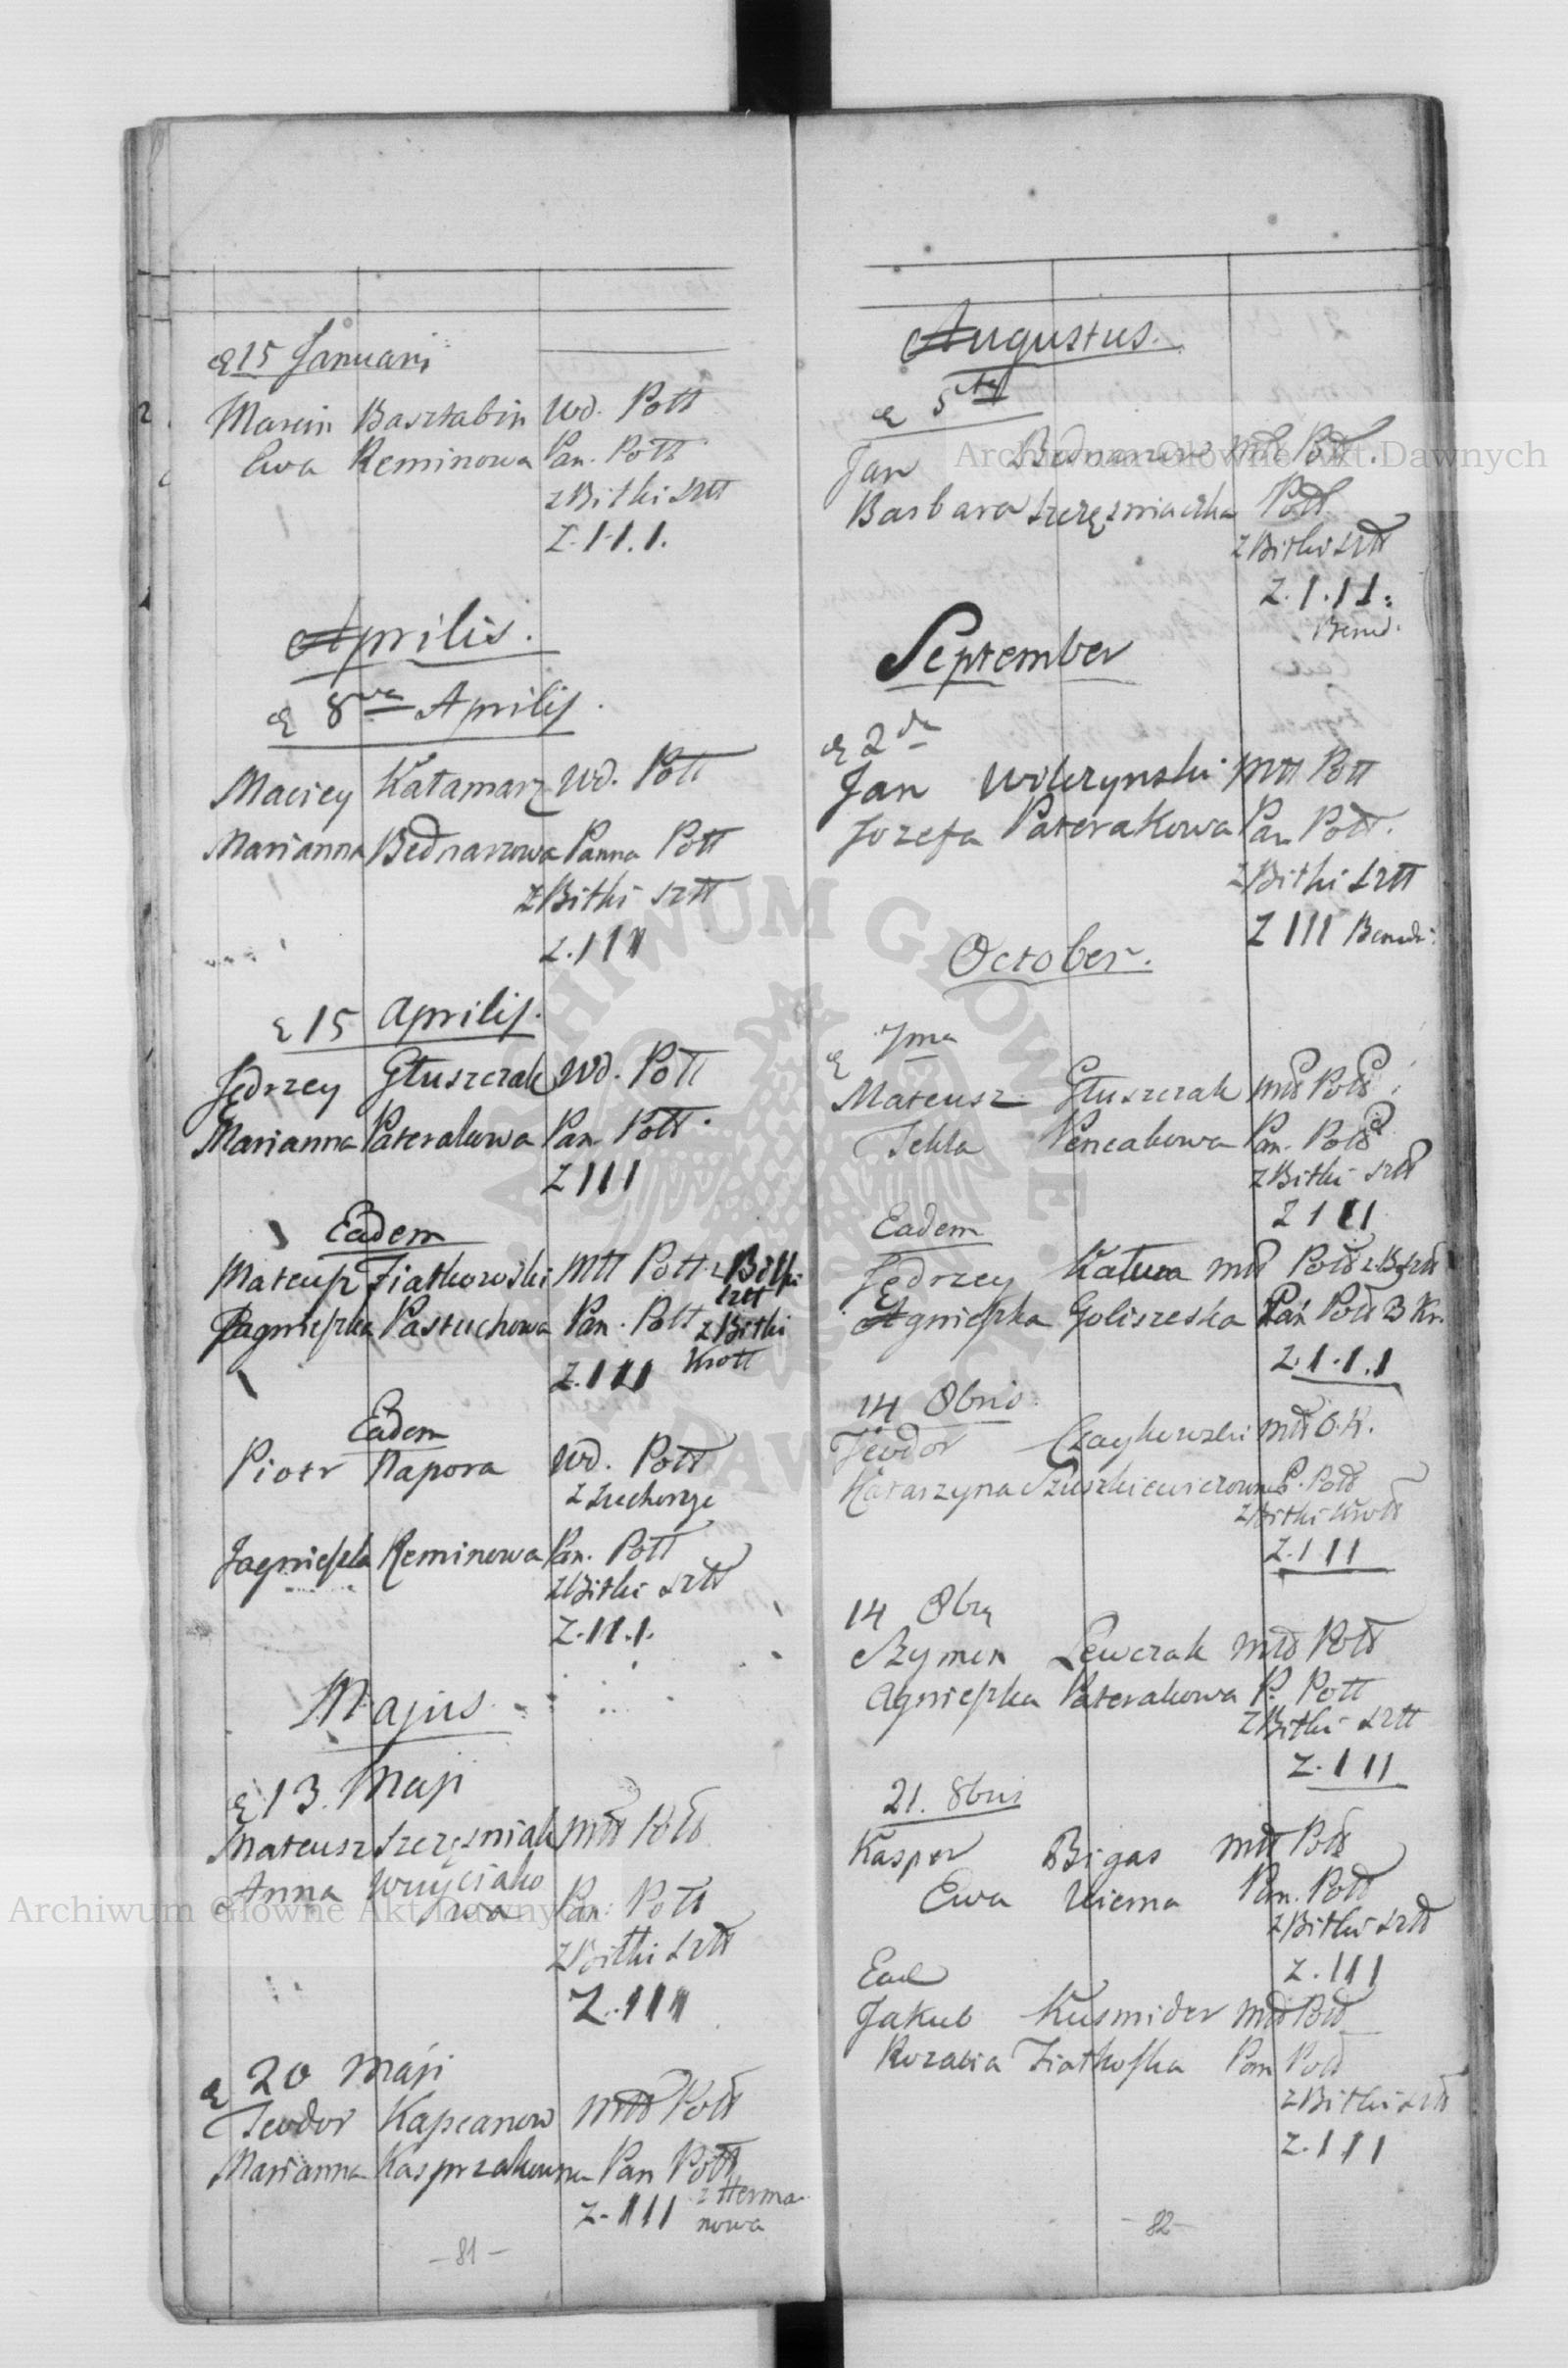 15 Januarii
Marcin Basztabin Wd. Pott
Ewa Reminowa Pan. Pott
z Bitki szltt
Z. 1. 1. 1.
Aprilis.
8va Aprilis.
Maciey Katamarz Wd. Pott
Marianna Bednarzowa Panna Pott
z Bitki szltt
Z. 111
15 Aprilis.
Jędrzey Głuszczak Wd. Pott
Marianna Paterakowa Pan. Pott.
Z 111
Eadem
Mateusz Fiałkowski Mtt Pott z Bitki
szltt
Jagnieszka Pastuchowa Pan. Pott z Bitki
Z. 111 Krott
Eadem
Piotr Napora Wd. Pott
z Suchorze
Jagnieszka Reminowa Pan. Pott
z Bitki szltt
Z. 11. 1.
Majus.
13. Maji
Mateusz Szczęsniak Mtt Pott
Anna Woyciako
wa Pan. Pott
z Bitki szltt
Z. 111
20 Maji
Teodor Kapcanow Mtt Pott
Marianna Kasprzakowna Pan Pott
z Herma
Z. 111 nowa
- 81 -
Augustus.
5ta
Jan Bednarz Mtt Pott.
Barbara Szczęsniaczka Pott
z Bitki szltt
Z. 1. 11.
Bened.
September
2da
Jan Wilczynski Mtt Pott
Jozefa Paterakowa Pan Pott.
z Bitki szltt
Z 111 Bened.
October.
7ma
Mateusz Głuszczak Mtt Pott
Tekla Pencakowa Pan. Pott
z Bitki szltt
Z 111
Eadem
Jędrzey Katuza Mtt Pott z B szltt
Agnieszka Goliszeska Pan Pott B Kr.
Z. 1. 1. 1
14 8bris
Teodor Czaykowski Mtt O. K.
Katarzyna Szuszkiewiczowna P. Pott
z Bitki Krott
Z. 111
14 8bris
Szymon Lewczak Mtt Pott
Agnieszka Paterakowa P. Pott
z Bitki szltt
Z. 111
21. 8bris
Kasper Bigas Mtt Pott
Ewa Wierna Pan. Pott
z Bitki szltt
Z. 111
Ead
Jakub Kusmider Mtt Pott
Rozalia Fiatkoska Pan Pott
z Bitki szltt
Z. 111
- 82 -
Archiwum Główne Akt Dawnych
Archiwum Główne Akt Dawnych